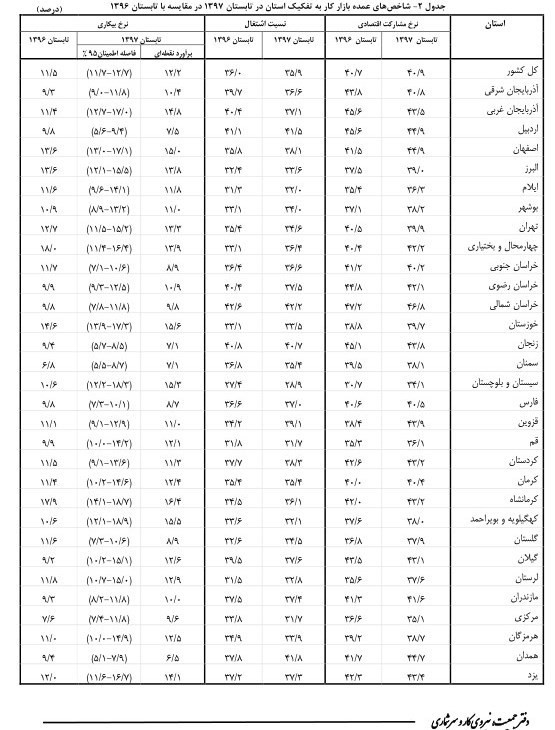 جدول ۲- شاخص‌های عمده بازار کار به تفکیک استان در تابستان ۱۳۹۷ در مقایسه با تابستان ۱۳۹۶ (درصد)
استان نرخ مشارکت اقتصادی نسبت اشتغال نرخ بیکاری
تابستان ۱۳۹۷ تابستان ۱۳۹۶ تابستان ۱۳۹۷ تابستان ۱۳۹۶ تابستان ۱۳۹۷ تابستان ۱۳۹۶
برآورد نقطه‌ای فاصله اطمینان ۹۵ %
کل کشور ۴۰/۹ ۴۰/۷ ۳۵/۹ ۳۶/۰ ۱۲/۲ (۱۱/۷-۱۲/۷) ۱۱/۵
آذربایجان شرقی ۴۰/۸ ۴۳/۸ ۳۶/۶ ۳۹/۷ ۱۰/۴ (۹/۰-۱۱/۸) ۹/۳
آذربایجان غربی ۴۳/۵ ۴۵/۶ ۳۷/۱ ۴۰/۴ ۱۴/۸ (۱۲/۷-۱۷/۰) ۱۱/۴
اردبیل ۴۴/۹ ۴۵/۶ ۴۱/۵ ۴۱/۱ ۷/۵ (۵/۶-۹/۴) ۹/۸
اصفهان ۴۴/۹ ۴۱/۵ ۳۸/۱ ۳۵/۸ ۱۵/۰ (۱۳/۰-۱۷/۱) ۱۳/۶
البرز ۳۹/۰ ۳۷/۵ ۳۳/۶ ۳۲/۴ ۱۳/۸ (۱۲/۱-۱۵/۵) ۱۳/۶
ایلام ۳۶/۳ ۳۵/۴ ۳۲/۰ ۳۱/۳ ۱۱/۸ (۹/۶-۱۴/۱) ۱۱/۶
بوشهر ۳۸/۲ ۳۷/۱ ۳۴/۰ ۳۳/۱ ۱۱/۰ (۸/۹-۱۳/۲) ۱۰/۹
تهران ۳۹/۹ ۴۰/۵ ۳۴/۶ ۳۵/۴ ۱۳/۳ (۱۱/۵-۱۵/۲) ۱۲/۷
چهارمحال و بختیاری ۴۲/۲ ۴۰/۴ ۳۶/۴ ۳۳/۱ ۱۳/۹ (۱۱/۴-۱۶/۴) ۱۸/۰
خراسان جنوبی ۴۰/۲ ۴۱/۲ ۳۶/۶ ۳۶/۴ ۸/۹ (۷/۱-۱۰/۶) ۱۱/۷
خراسان رضوی ۴۲/۱ ۴۴/۸ ۳۷/۵ ۴۰/۴ ۱۰/۹ (۹/۳-۱۲/۵) ۹/۹
خراسان شمالی ۴۶/۸ ۴۷/۲ ۴۲/۲ ۴۲/۶ ۹/۸ (۷/۸-۱۱/۸) ۹/۸
خوزستان ۳۹/۷ ۳۸/۸ ۳۳/۵ ۳۳/۱ ۱۵/۶ (۱۳/۹-۱۷/۳) ۱۴/۶
زنجان ۴۳/۸ ۴۵/۱ ۴۰/۷ ۴۰/۸ ۷/۱ (۵/۷-۸/۵) ۹/۴
سمنان ۳۸/۱ ۳۹/۵ ۳۵/۴ ۳۶/۸ ۷/۱ (۵/۵-۸/۷) ۶/۸
سیستان و بلوچستان ۳۴/۱ ۳۰/۷ ۲۸/۹ ۲۷/۴ ۱۵/۳ (۱۲/۲-۱۸/۳) ۱۰/۶
فارس ۴۰/۵ ۴۰/۶ ۳۷/۰ ۳۶/۶ ۸/۷ (۷/۳-۱۰/۱) ۹/۸
قزوین ۴۳/۹ ۳۸/۴ ۳۹/۱ ۳۴/۲ ۱۱/۰ (۹/۱-۱۲/۹) ۱۱/۱
قم ۳۶/۱ ۳۵/۳ ۳۱/۷ ۳۱/۸ ۱۲/۱ (۱۰/۰-۱۴/۲) ۹/۹
کردستان ۴۳/۲ ۴۲/۶ ۳۸/۳ ۳۷/۷ ۱۱/۳ (۹/۱-۱۳/۶) ۱۱/۵
کرمان ۴۰/۴ ۴۰/۰ ۳۵/۴ ۳۵/۴ ۱۲/۴ (۱۰/۲-۱۴/۶) ۱۱/۴
کرمانشاه ۴۳/۲ ۴۲/۰ ۳۶/۱ ۳۴/۵ ۱۶/۴ (۱۴/۱-۱۸/۷) ۱۷/۹
کهگیلویه و بویراحمد ۳۸/۰ ۳۷/۶ ۳۲/۱ ۳۳/۶ ۱۵/۵ (۱۲/۱-۱۸/۹) ۱۰/۶
گلستان ۳۷/۹ ۳۶/۸ ۳۴/۵ ۳۲/۶ ۸/۹ (۷/۳-۱۰/۶) ۱۱/۶
گیلان ۴۳/۱ ۴۳/۵ ۳۷/۶ ۳۹/۵ ۱۲/۶ (۱۰/۲-۱۵/۱) ۹/۲
لرستان ۳۷/۶ ۳۵/۶ ۳۲/۸ ۳۱/۵ ۱۲/۹ (۱۰/۷-۱۵/۰) ۱۱/۸
مازندران ۴۱/۶ ۴۱/۳ ۳۷/۴ ۳۷/۵ ۱۰/۰ (۸/۲-۱۱/۸) ۹/۳
مرکزی ۳۵/۱ ۳۶/۶ ۳۱/۷ ۳۳/۸ ۹/۶ (۷/۴-۱۱/۸) ۷/۶
هرمزگان ۳۸/۷ ۳۹/۲ ۳۳/۹ ۳۴/۹ ۱۲/۵ (۱۰/۰-۱۴/۹) ۱۱/۰
همدان ۴۴/۷ ۴۱/۷ ۴۱/۸ ۳۷/۸ ۶/۵ (۵/۱-۷/۹) ۹/۴
یزد ۴۳/۴ ۴۲/۳ ۳۷/۳ ۳۷/۲ ۱۴/۱ (۱۱/۶-۱۶/۷) ۱۲/۰
دفتر جمعیت، نیروی کار و سرشماری